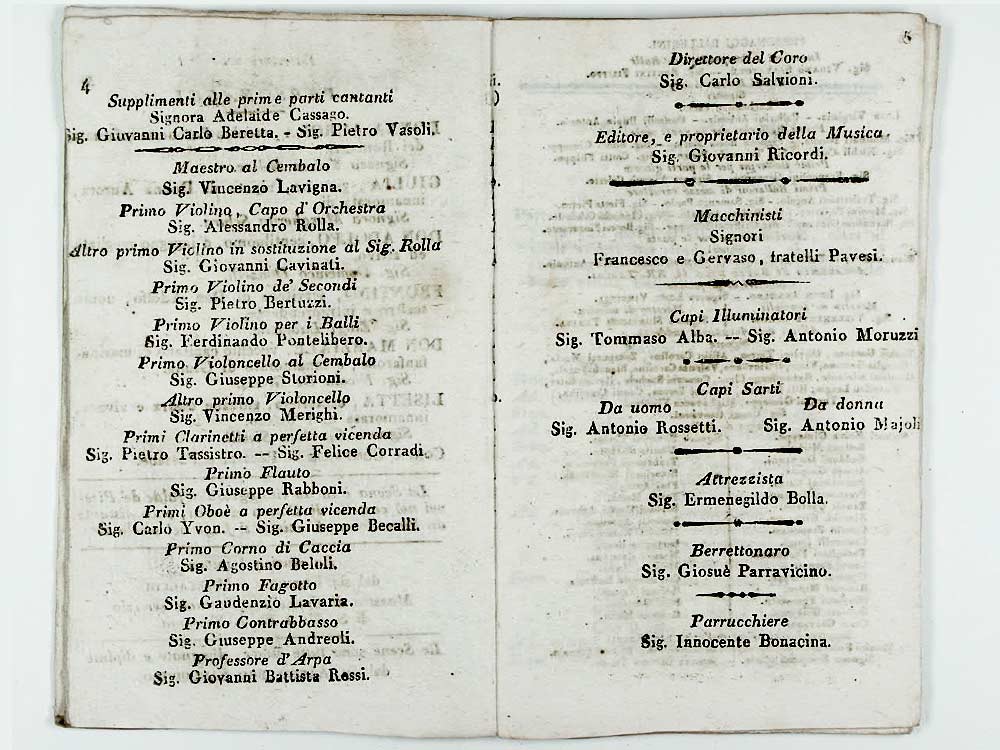 4
Supplimenti alle prime parti cantanti
Signora Adelaide Cassago.
Sig. Giovanni Carlo Beretta. - Sig. Pietro Vasoli.
Maestro al Cembalo
Sig. Vincenzo Lavigna.
Primo Violino, Capo d' Orchestra
Sig. Alessandro Rolla.
Altro primo Violino in sostituzione al Sig. Rolla
Sig. Giovanni Cavinati.
Primo Violino de' Secondi
Sig. Pietro Bertuzzi.
Primo Violino per i Balli
Sig. Ferdinando Pontelibero.
Primo Violoncello al Cembalo
Sig. Giuseppe Storioni.
Altro primo Violoncello
Sig. Vincenzo Merighi.
Primi Clarinetti a perfetta vicenda
Sig. Pietro Tassistro. -- Sig. Felice Corradi.
Primo Flauto
Sig. Giuseppe Rabboni.
Primi Oboè a perfetta vicenda
Sig. Carlo Yvon. -- Sig. Giuseppe Becalli.
Primo Corno di Caccia
Sig. Agostino Beloli.
Primo Fagotto
Sig. Gaudenzio Lavaria.
Primo Contrabbasso
Sig. Giuseppe Andreoli.
Professore d'Arpa
Sig. Giovanni Battista Rossi.
5
Direttore del Coro
Sig. Carlo Salvioni.
Editore, e proprietario della Musica.
Sig. Giovanni Ricordi.
Macchinisti
Signori
Francesco e Gervaso, fratelli Pavesi.
Capi Illuminatori
Sig. Tommaso Alba. -- Sig. Antonio Moruzzi
Capi Sarti
Da uomo Da donna
Sig. Antonio Rossetti. Sig. Antonio Majoli
Attrezzista
Sig. Ermenegildo Bolla.
Berrettonaro
Sig. Giosuè Parravicino.
Parrucchiere
Sig. Innocente Bonacina.